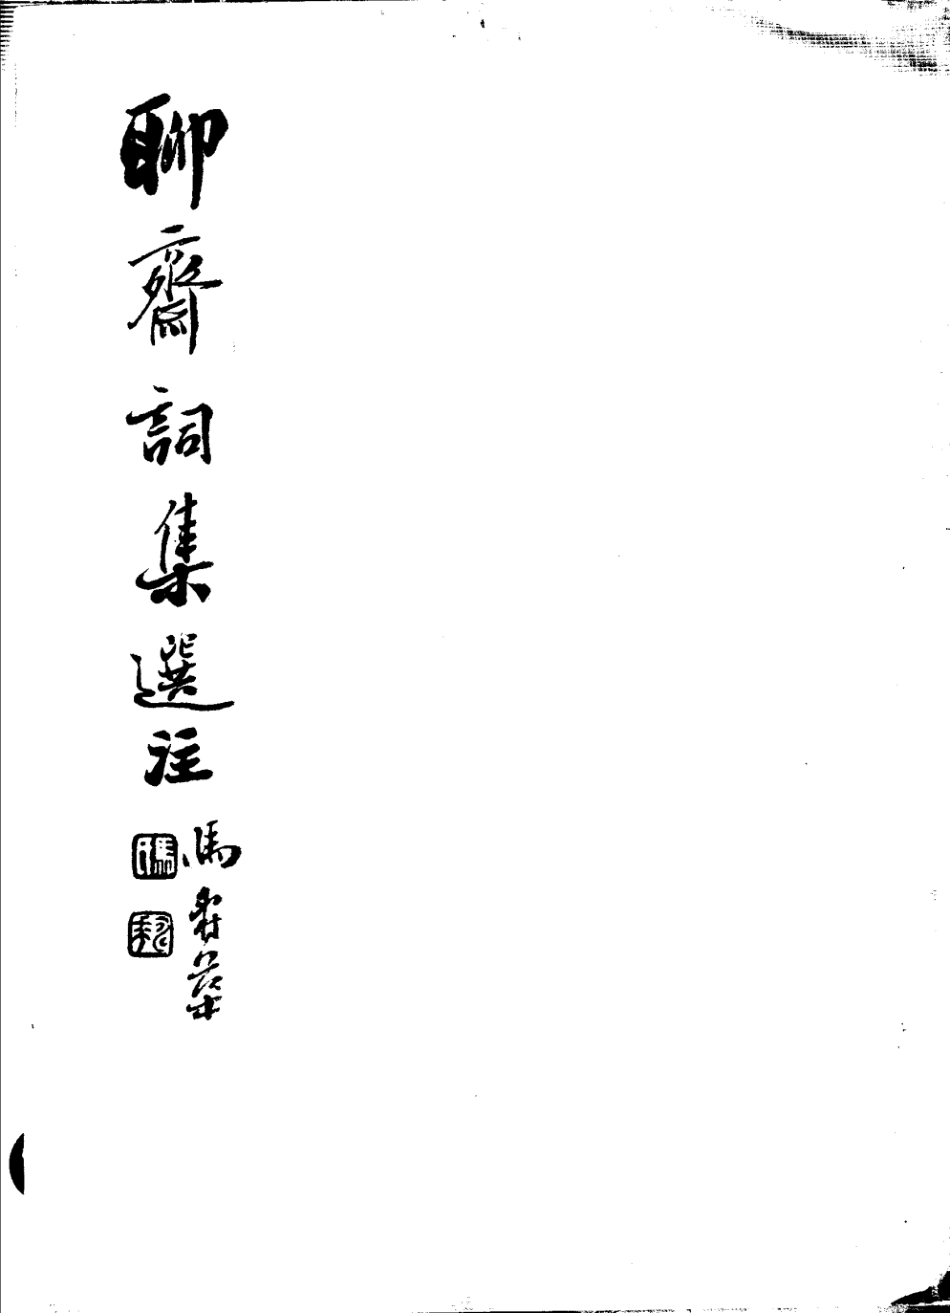 聊齋詞集選注
馬